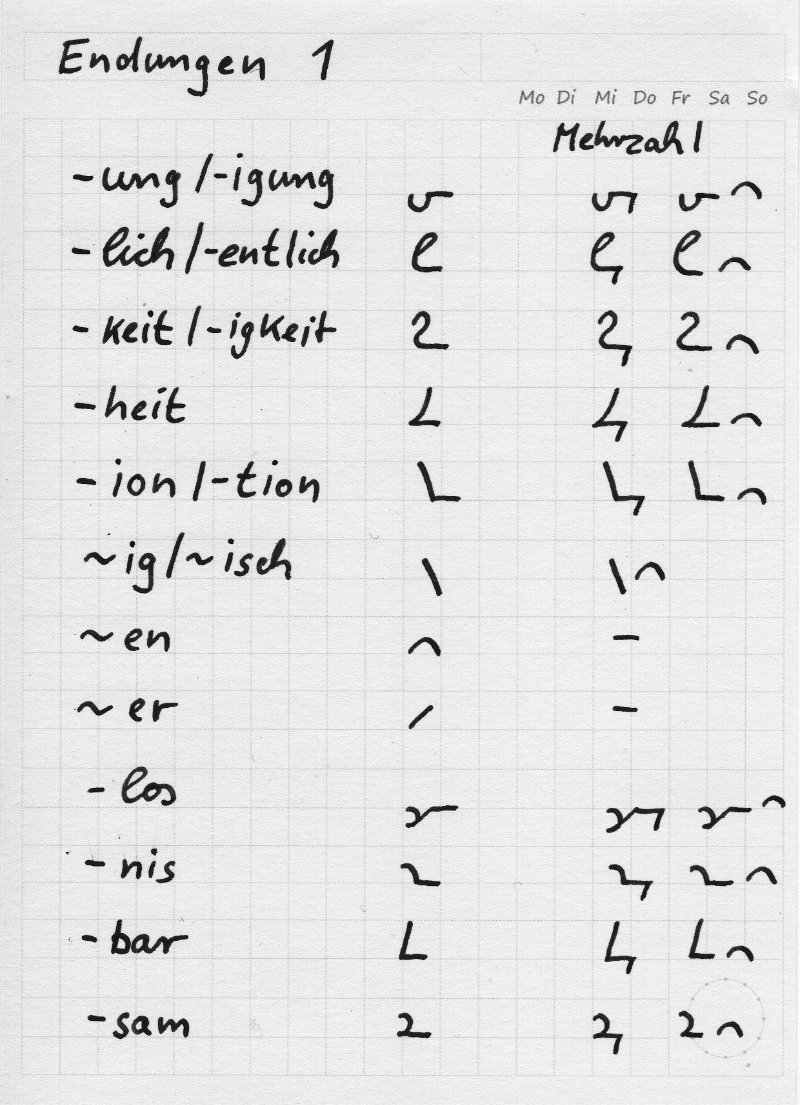 Endungen 1
Mo Di Mi Do Fr Sa So
Mehrzahl
-ung/-igung
-lich/-entlich
-keit/-igkeit
-heit
-ion/-tion
~ig/~isch
~en
~er
-los
-nis
-bar
-sam